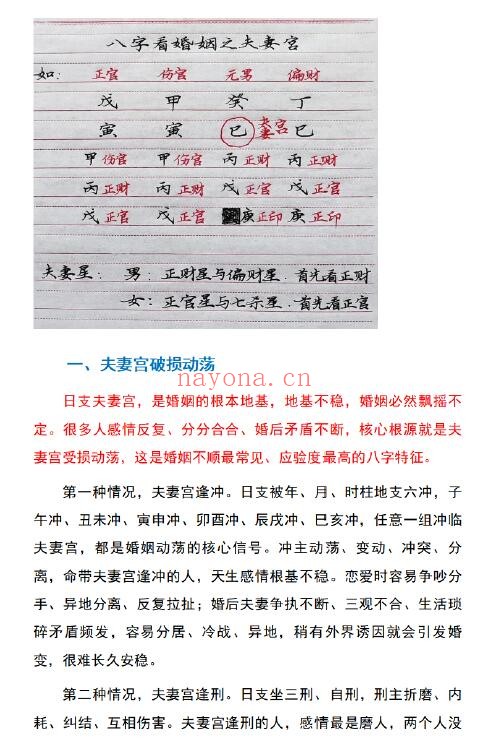 八字看婚姻之夫妻宫
如: 正官 伤官 元男 偏财
戊 甲 癸 丁
寅 寅 巳 夫妻宫 巳
甲伤官 甲伤官 丙正财 丙正财
丙正财 丙正财 戊正官 戊正官
戊正官 戊正官 庚正印 庚正印
夫妻星: 男: 正财星与偏财星.首先看正财
女: 正官星与七杀星.首先看正官
一、夫妻宫破损动荡
nayona.cn
日支夫妻宫，是婚姻的根本地基，地基不稳，婚姻必然飘摇不
定。很多人感情反复、分分合合、婚后矛盾不断，核心根源就是夫
妻宫受损动荡，这是婚姻不顺最常见、应验度最高的八字特征。
第一种情况，夫妻宫逢冲。日支被年、月、时柱地支六冲，子
午冲、丑未冲、寅申冲、卯酉冲、辰戌冲、巳亥冲，任意一组冲临
夫妻宫，都是婚姻动荡的核心信号。冲主动荡、变动、冲突、分
离，命带夫妻宫逢冲的人，天生感情根基不稳。恋爱时容易争吵分
手、异地分离、反复拉扯；婚后夫妻争执不断、三观不合、生活琐
碎矛盾频发，容易分居、冷战、异地，稍有外界诱因就会引发婚
变，很难长久安稳。
第二种情况，夫妻宫逢刑。日支坐三刑、自刑，刑主折磨、内
耗、纠结、互相伤害。夫妻宫逢刑的人，感情最是磨人，两个人没